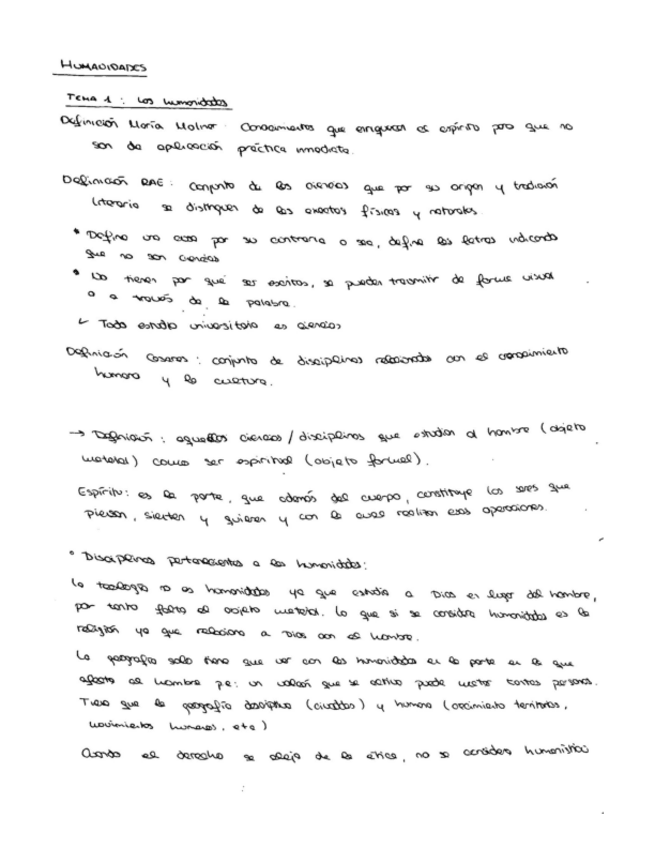 HUMANIDADES
TEMA 1 : Los humanidades
Definición María Moliner : Conocimientos que enriquecen el espíritu pero que no
son de aplicación práctica inmediata.
Definición RAE : conjunto de las ciencias que por su origen y tradición
literaria se distinguen de las exactas físicas y naturales.
* Define una cosa por su contraria o sea, define las letras indicando
que no son ciencias
* No tienen por qué ser escritas, se pueden trasmitir de forma visual
o a través de la palabra.
Todo estudio universitario es ciencias
Definición Casares : conjunto de disciplinas relacionadas con el conocimiento
humano y la cultura.
→ Definición : aquellas ciencias / disciplinas que estudian al hombre (objeto
material) como ser espiritual (objeto formal).
Espíritu: es la parte, que además del cuerpo, constituye los seres que
piensan, sienten y quieren y con la cual realizan esas operaciones.
° Disciplinas pertenecientes a las humanidades:
La teología no es humanidades ya que estudia a Dios en lugar del hombre,
por tanto falta el objeto material. Lo que si se considera humanidades es la
religión ya que relaciona a Dios con el hombre.
La geografía solo tiene que ver con las humanidades en la parte en la que
afecta al hombre pe: un volcán que se activa puede matar tantas personas.
que la geografía descriptiva (ciudades) y humana (crecimiento territorios,
movimientos humanos, etc)
Cuando el derecho se aleja de la ética, no se considera humanística